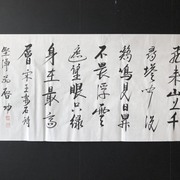 飛来山上千
尋塔聞説
鷄鳴見日昇
不畏浮雲
遮望眼只緣
身在最高
層 宋王安石詩
启功